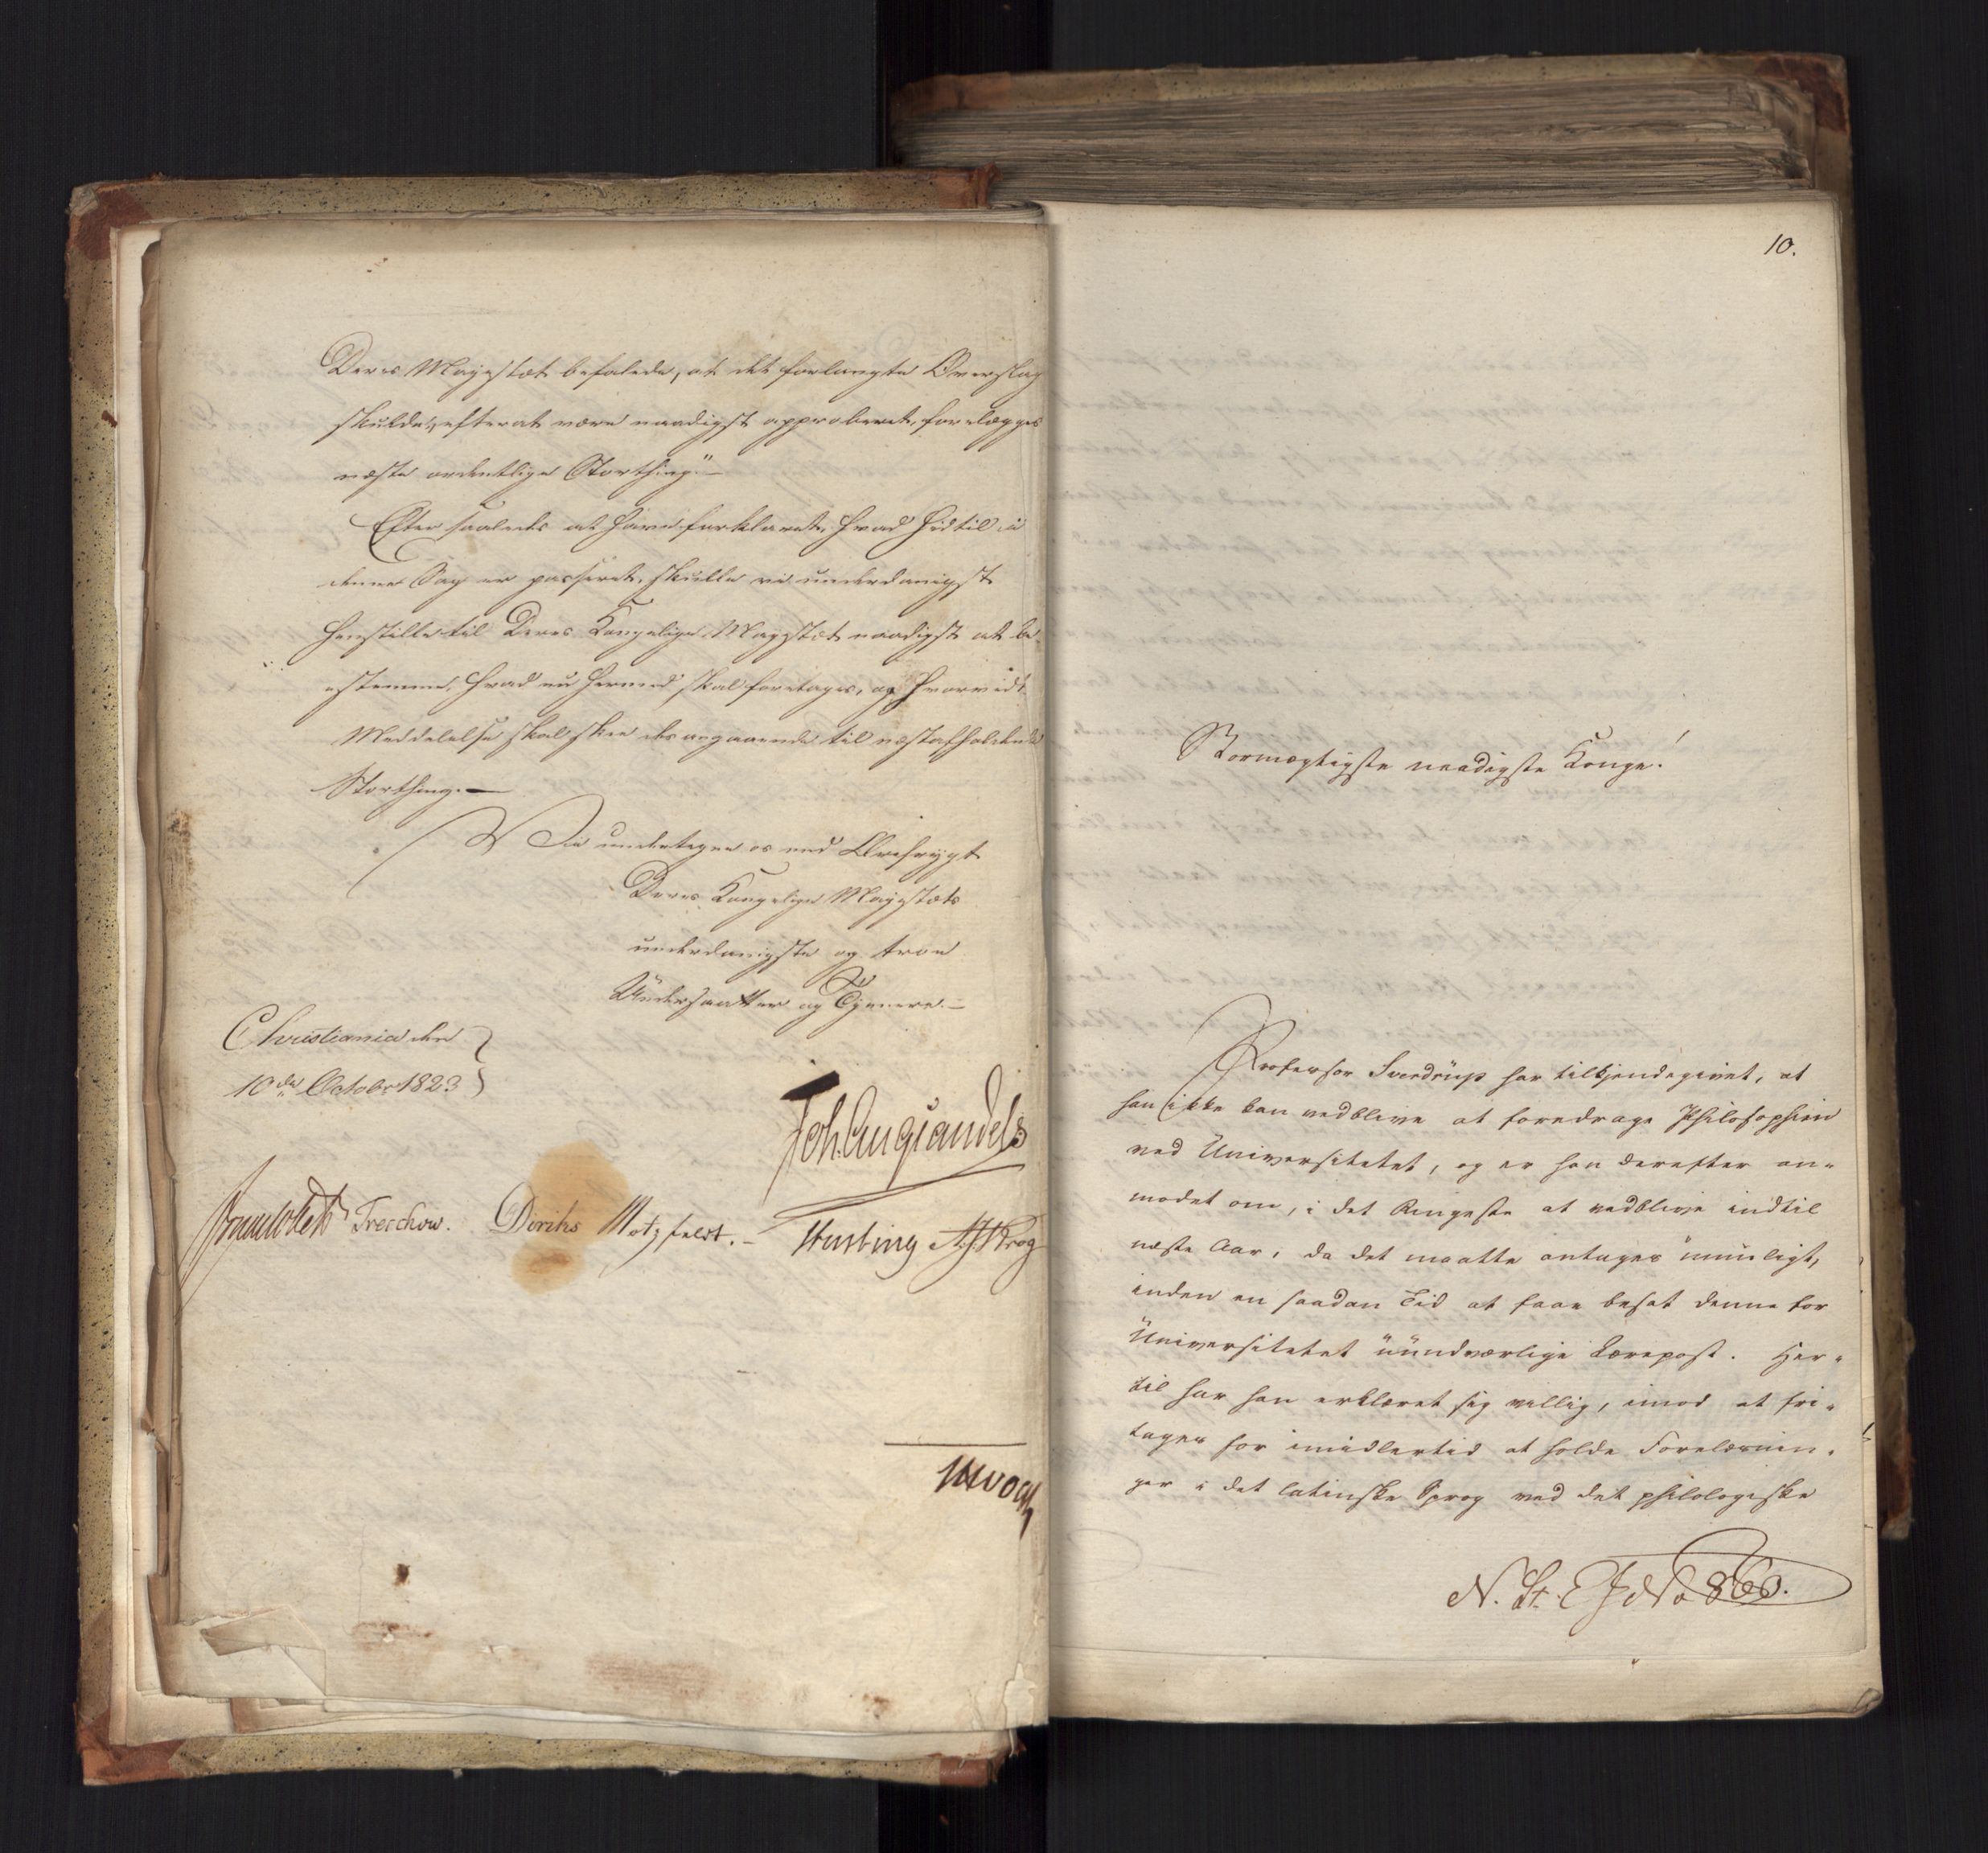 Deres Majestæt befalede, at det forlangte Overslag
skulde, efterat være naadigst approberet, forelægges
næste ordentlige Storthing."—
Efter saaledes at have forklaret, hvad hidtil i
denne Sag er passeret, skulle vi underdanigst
henstille til Deres Kongelige Majestæt naadigst at be-
stemme, hvad nu hermed skal foretages, og hvorvidt
Meddelelse skal skee desangaaende til næstafholdende
Storthing.—
Vi undertegne os med Ærefrygt
Deres Kongelige Majestæts
underdanigste og troe
Undersaatter og Tjenere.—
Christiania den
10de Octobr 1823
Joh. Aug. Sandels
Sommerhielm Treschow. Diriks Motzfeldt.— Fasting A. J. Krog
J H Vogt
10.
Stormægtigste naadigste Konge!
Professor Sverdrup har tilkjendegivet, at
han ikke kan vedblive at foredrage Philosophien
ved Universitetet, og er han derefter an-
modet om, i det Ringeste at vedblive indtil
næste Aar, da det maatte antages umuligt,
inden en saadan Tid at faae besat denne for
Universitetet uundværlige Lærepost. Her-
til har han erklæret sig villig, imod at fri-
tages for imidlertid at holde Forelæsnin-
ger i det latinske Sprog ved det philologiske
N. St. E J No 860.